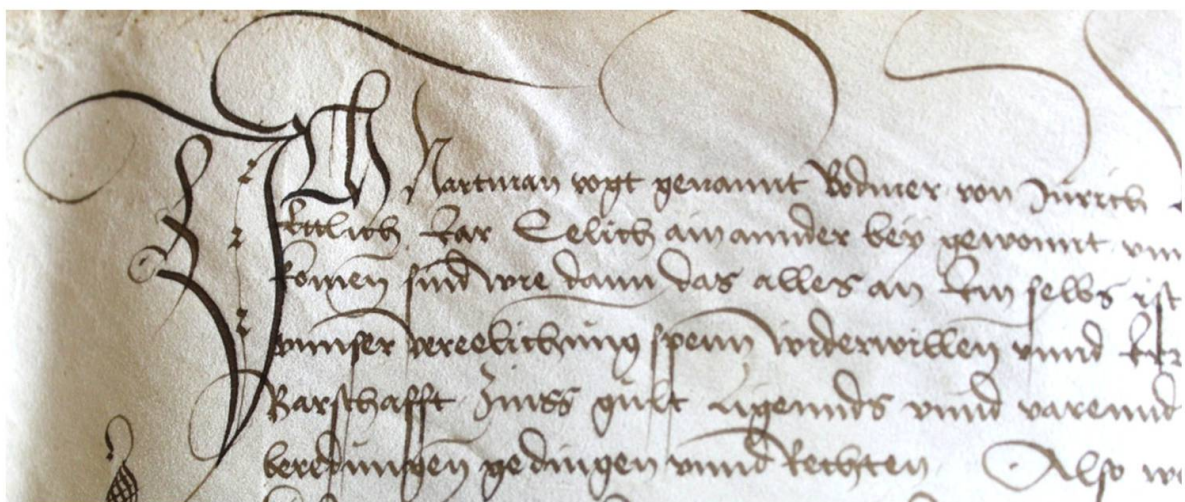 Ich Hartman vogt genannt Bodmer von Zürich
Ettlich Jar Eelich ainannder bey gewonnt vnn
komen sind wie dann das alles an Im selbs ist
vnnser vereelichung spenn widerwillen vnnd
Barschafft Zinss gült ligennds vnnd varennd
beredungen gedingen vnnd Rechten Also we